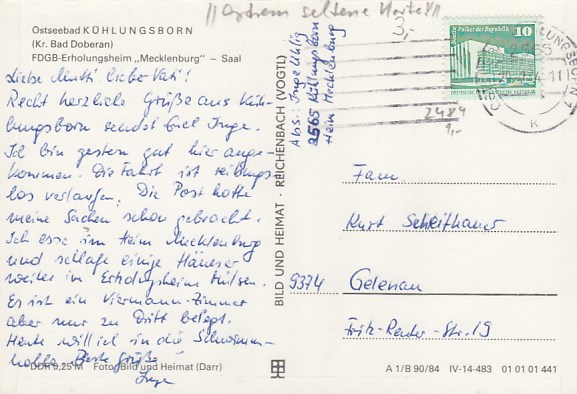 !! extrem seltene Karte !!
3,-
Ostseebad KÜHLUNGSBORN
(Kr. Bad Doberan)
FDGB-Erholungsheim „Mecklenburg" – Saal
Liebe Mutti! Lieber Vati!
Recht herzliche Grüße aus Küh-
lungsborn sendet Euch Inge.
Ich bin gestern gut hier ange-
kommen. Die Fahrt ist reibungs
los verlaufen. Die Post hatte
meine Sachen schon gebracht.
Ich esse im Heim Mecklenburg
und schlafe einige Häuser
weiter im Erholungsheim
Es ist ein Viermann-Zimmer
aber nur zu Dritt belegt.
Heute will ich in die Schwimm-
halle. Beste Grüße
Inge
DDR 0,25 M Foto: Bild und Heimat (Darr)
BILD UND HEIMAT · REICHENBACH (VOGTL)
Abs.: Inge Uhlig
2565 Kühlungsborn
Heim Mecklenburg
Palast der Republik 10
DDR
KÜHLUNGSBORN 1
2565
-11
k
2484
1,-
Fam.
Kurt Schreithauer
9374 Gelenau
Fritz-Reuter-Str. 19
A 1/B 90/84 IV-14-483 01 01 01 441